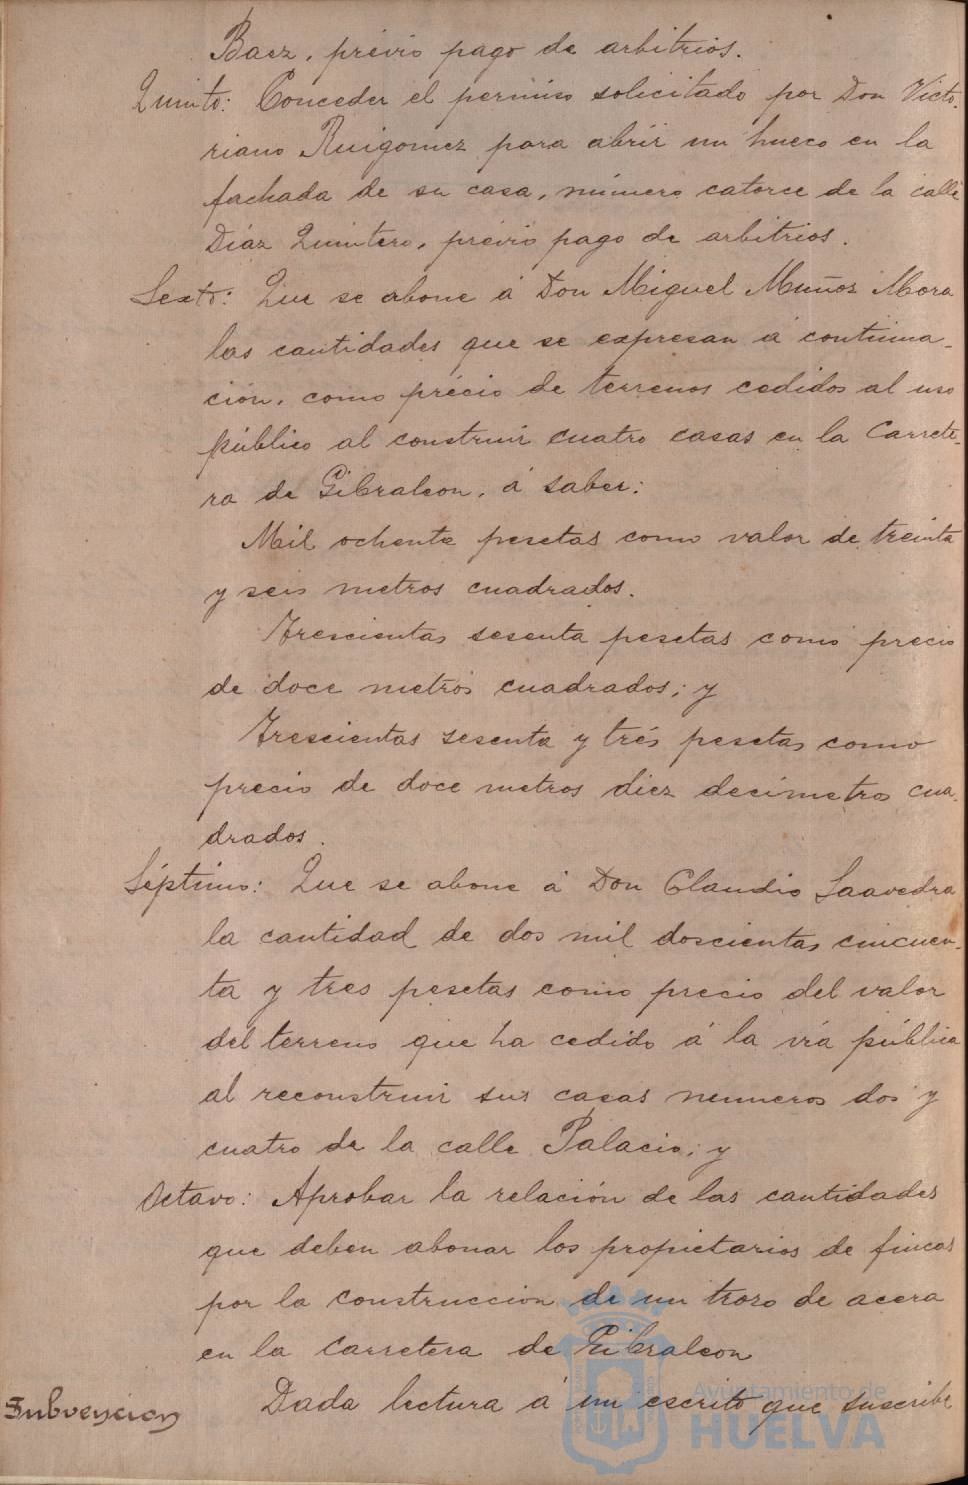 Baez, prévio pago de arbitrios.
Quinto: Conceder el permiso solicitado por Don Victo-
riano Ruigomez para abrir un hueco en la
fachada de su casa, número catorce de la calle
Díaz Quintero, prévio pago de arbitrios.
Sexto: Que se abone á Don Miguel Muñoz Mora
las cantidades que se expresan á continua-
ción, como précio de terrenos cedidos al uso
público al construir cuatro casas en la Carrete-
ra de Gibraleon, á saber:
Mil ochenta pesetas como valor de treinta
y seis metros cuadrados.
Trescientas sesenta pesetas como precio
de doce metros cuadrados; y
Trescientas sesenta y trés pesetas como
precio de doce metros diez decímetros cua-
drados.
Séptimo: Que se abone á Don Claudio Saavedra
la cantidad de dos mil doscientas cincuen-
ta y tres pesetas como precio del valor
del terreno que ha cedido á la vía pública
al reconstruir sus casas numeros dos y
cuatro de la calle Palacio; y
Octavo: Aprobar la relación de las cantidades
que deben abonar los propietarios de fincas
por la construccion de un trozo de acera
en la carretera de Gibraleon
Subvencion Dada lectura á un escrito que suscribe
Ayuntamiento de
HUELVA